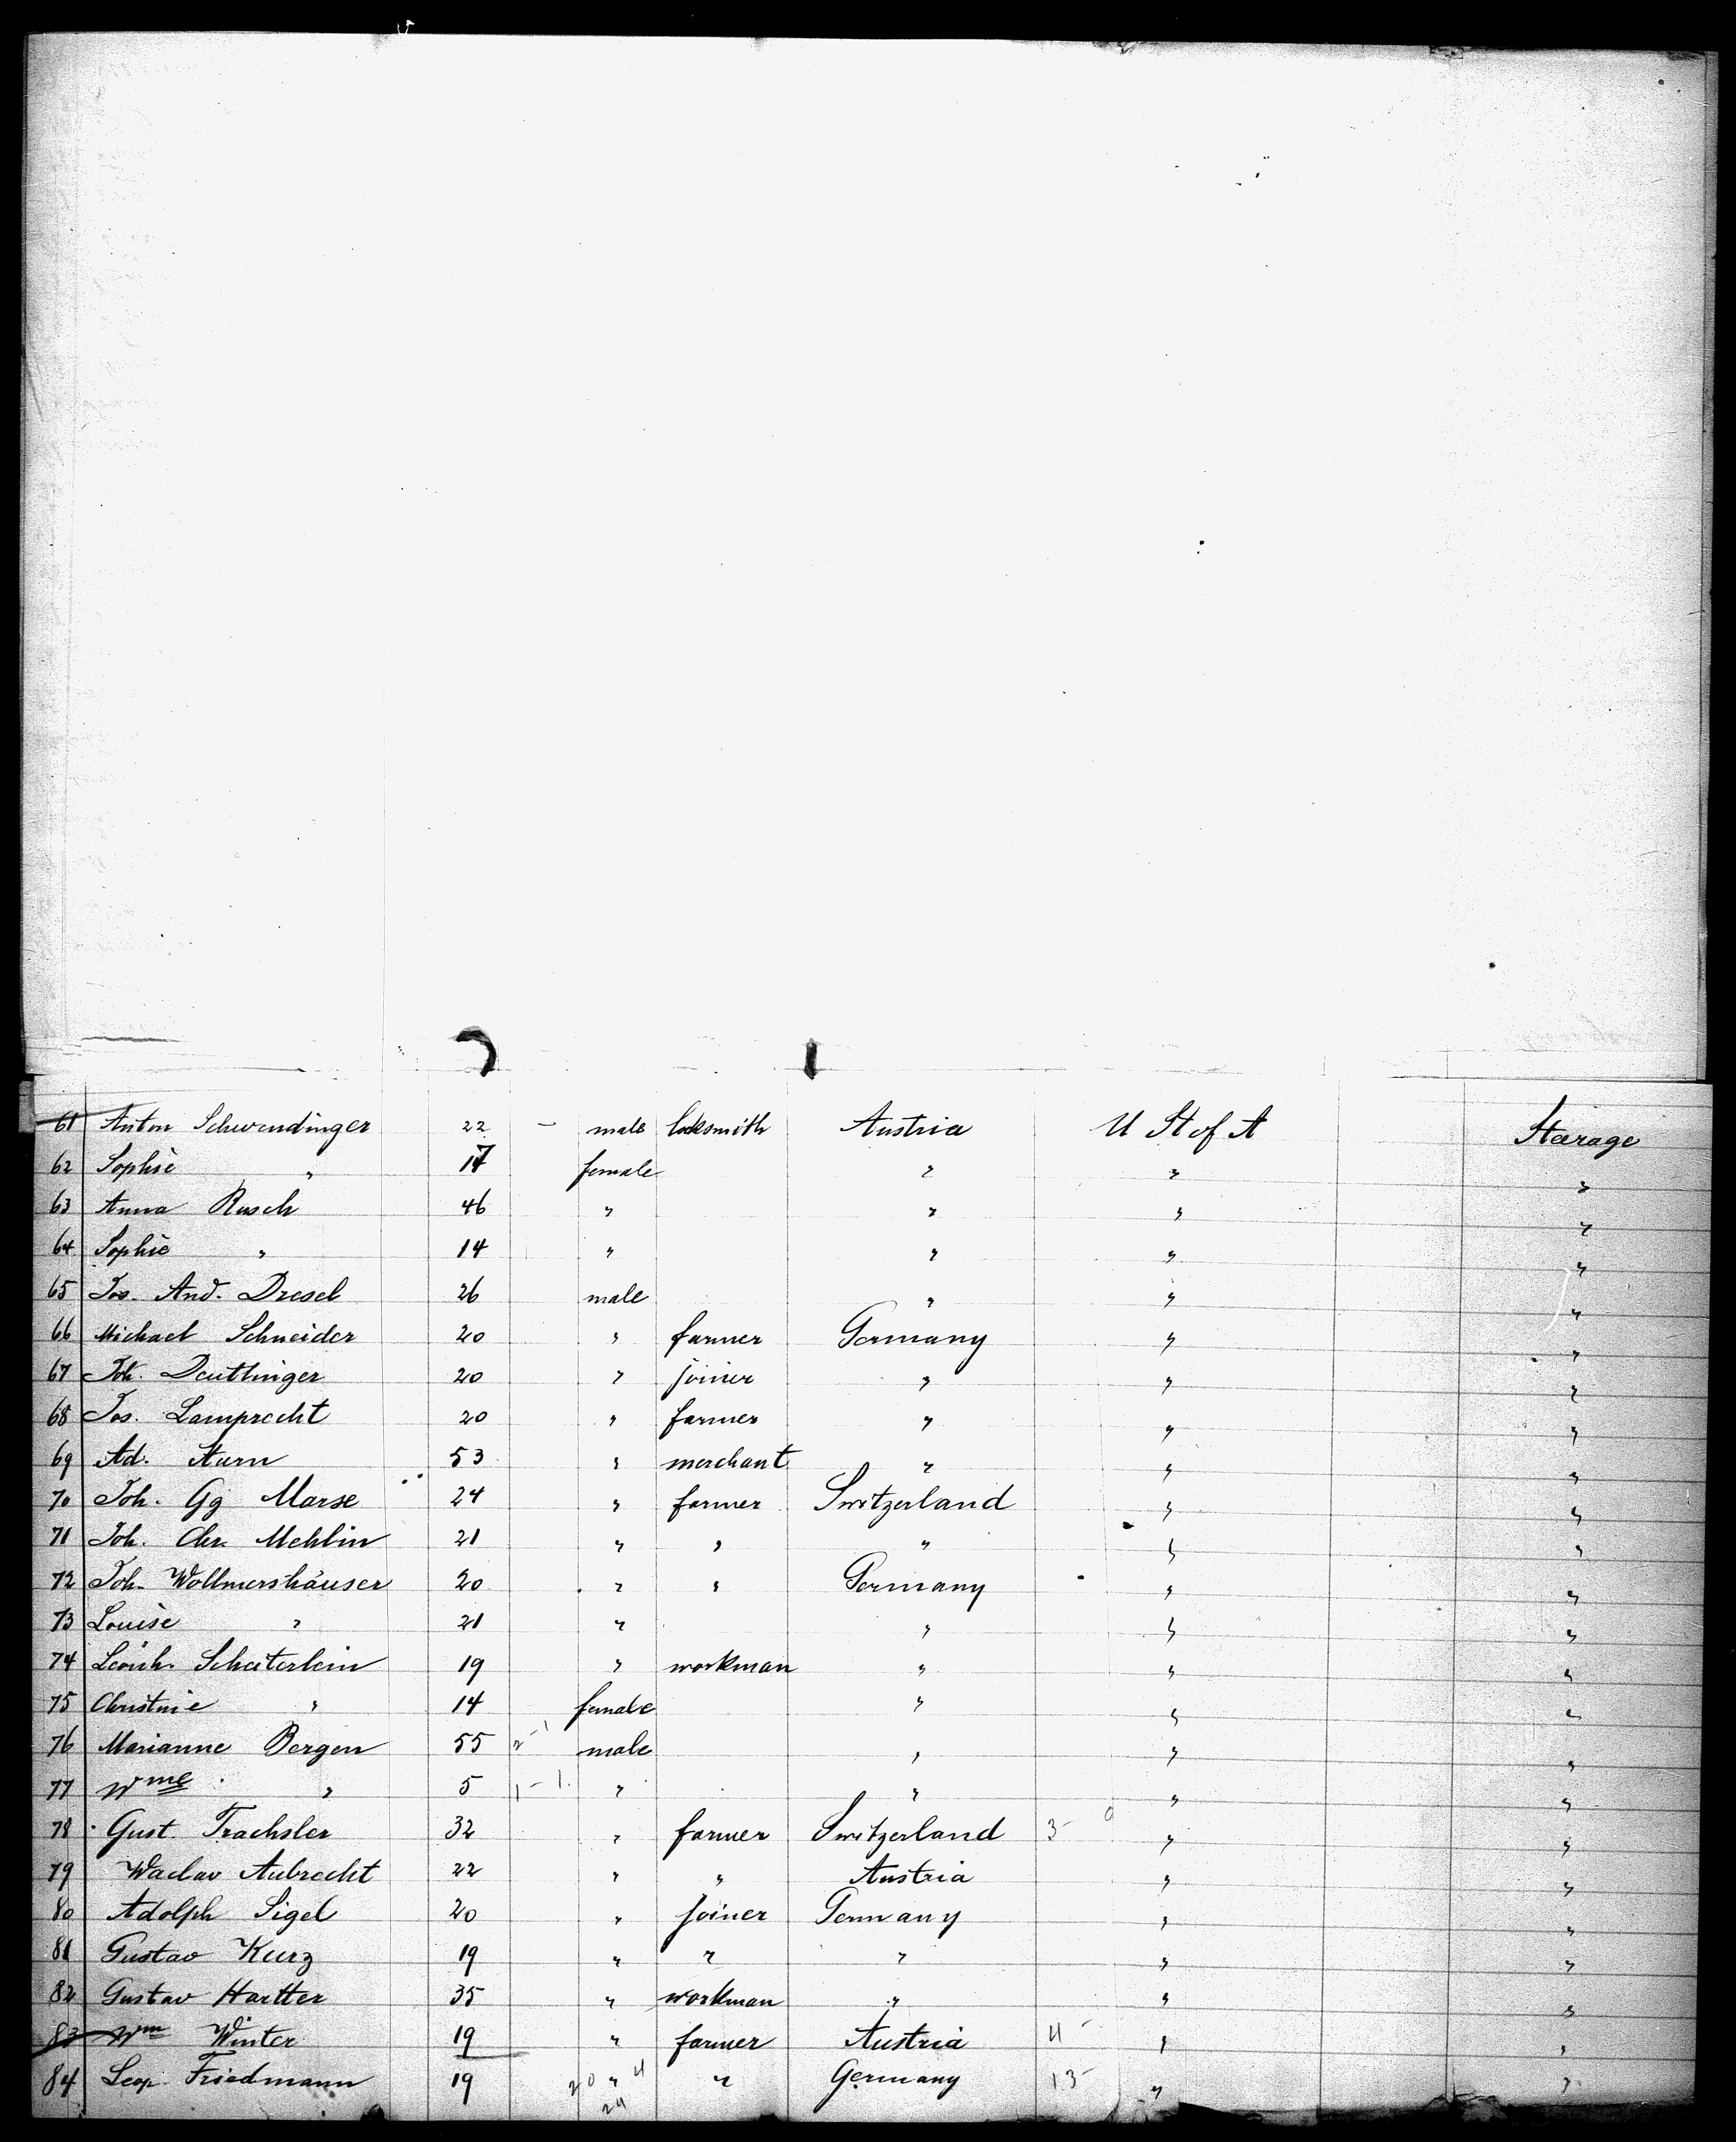 61 Anton Schwendinger 22 – male locksmith Austria U St of A Steerage
62 Sophie " 17 female " " "
63 Anna Rusch 46 " " " "
64 Sophie " 14 " " " "
65 Jos. And. Dresel 26 male " " "
66 Michael Schneider 20 " farmer Germany " "
67 Joh. Deuttinger 20 " joiner " " "
68 Jos. Lamprecht 20 " farmer " " "
69 Ad. Sturn 53 " merchant " " "
70 Joh. Gg Marse 24 " farmer Switzerland " "
71 Joh. Chr. Mehlin 21 " " " " "
72 Joh. Wollmershäuser 20 " " Germany " "
73 Louise " 21 " " " "
74 Leonh. Scheiterlein 19 " workman " " "
75 Christine " 14 female " " "
76 Marianne Bergen 55 male " " "
77 Wme " 5 1 – 1. " " " "
78 Gust. Trachsler 32 " farmer Switzerland 3 – " "
79 Waclav Aubrecht 22 " " Austria " "
80 Adolph Sigel 20 " joiner Germany " "
81 Gustav Kurz 19 " " " " "
82 Gustav Hartter 35 " workman " " "
83 Wm Winter 19 " farmer Austria 4 – " "
84 Leop. Friedmann 19 20 " 4 " Germany 13 – " "
24